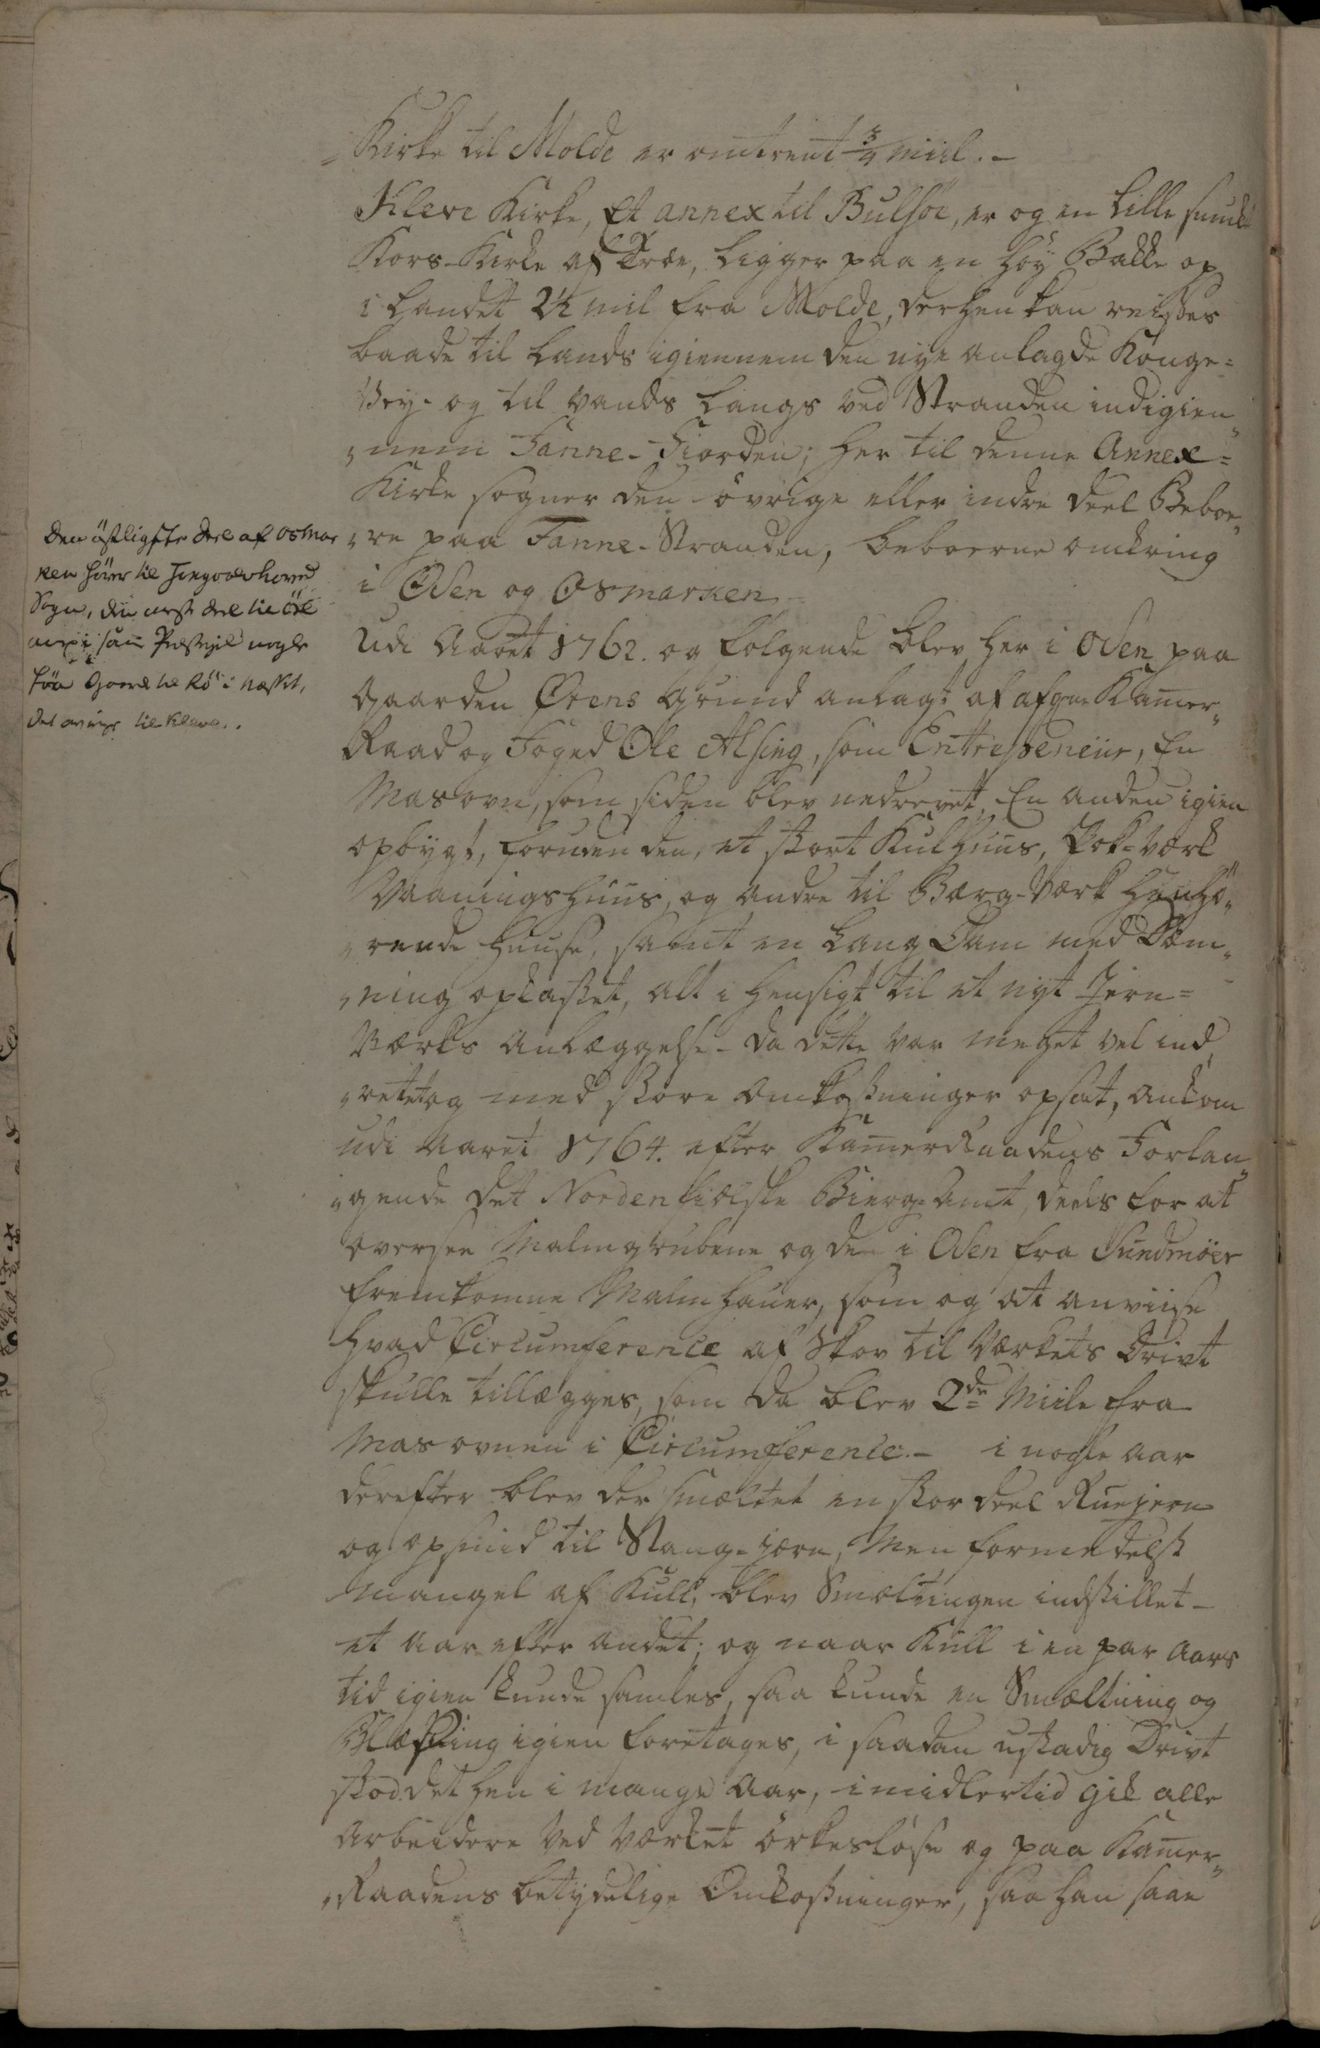 Kirke til Molde er omtrent 3/4 miil. -
Kleve Kirke, Et annex til Bulsöe, er og en lille smuk
Kors-Kirke af Træe, ligger paa en höy Bakke op
i Landet 2½ mil fra Molde, derhen kan reises
baade til Lands igiennem den nye anlagde Konge=
Vey- og til vands langs ved Stranden indigien„
„nem Fanne-Fiorden; her til denne Annex=
Kirke sogner den övrige eller indre deel Beboe„
„re paa Fanne-Stranden, beboerne omkring
i Osen og Osmarken
Udi Aaret 1762. og fölgende blev her i Osen paa
Gaarden Örens grund anlagt af afgne Kamer„
Raad og Foged Ole Alsing, som Entrepeneur, En
Masovn, som siden blev nedrevet, En anden igien
opbÿgt, foruden den, et stort Kulhuus, Pok-værk
Vaaningshuus, og andre til Bærg-Værk henhö„
„rende huuse, samt en lang Dam med Dæm„
„ning opkastet, alt i hensigt til et nyt Jern=
Værks Anlæggelse- da dette var meget vel ind„
„rettet og med store Omkostninger opsat, ankom
udi Aaret 1764. efter KamerRaadens Forlan„
„gende det Nordenfielske Bierg-Amt, deels for at
oversee Malmgrubene og den i Osen fra Sundmöer
fremkomne Malm hauer, som og at anviise
hvad Circumference af Skov til Værkets Drivt
skulle tillægges, som da blev 2de Miile fra
Masovnen i Circumference.- i nogle Aar
derefter blev der smæltet en stor deel Ruejern
og opsmid til Stang-jern, Men formedelst
Mangel af Kull, blev Smæltningen indstillet-
et Aar efter andet; og naar Kull i en par Aars
tid igien kunde samles, saa kunde en Smæltning og
Blæsning igien foretages, i saadan ustadig Drivt
stod det hen i mange Aar, imidlertid gik alle
Arbeidere Ved Værket örkeslöse og paa Kamer„
„Raadens betydelige Omkostninger, saa han saae
Den östligste deel af Osmar
ken hörer til Tingvold hoved
Sogn, den deel til Öre
i samme Præstegield nogle
faa Gaarde til Rö i Næsset,
det övrige til Kleve.